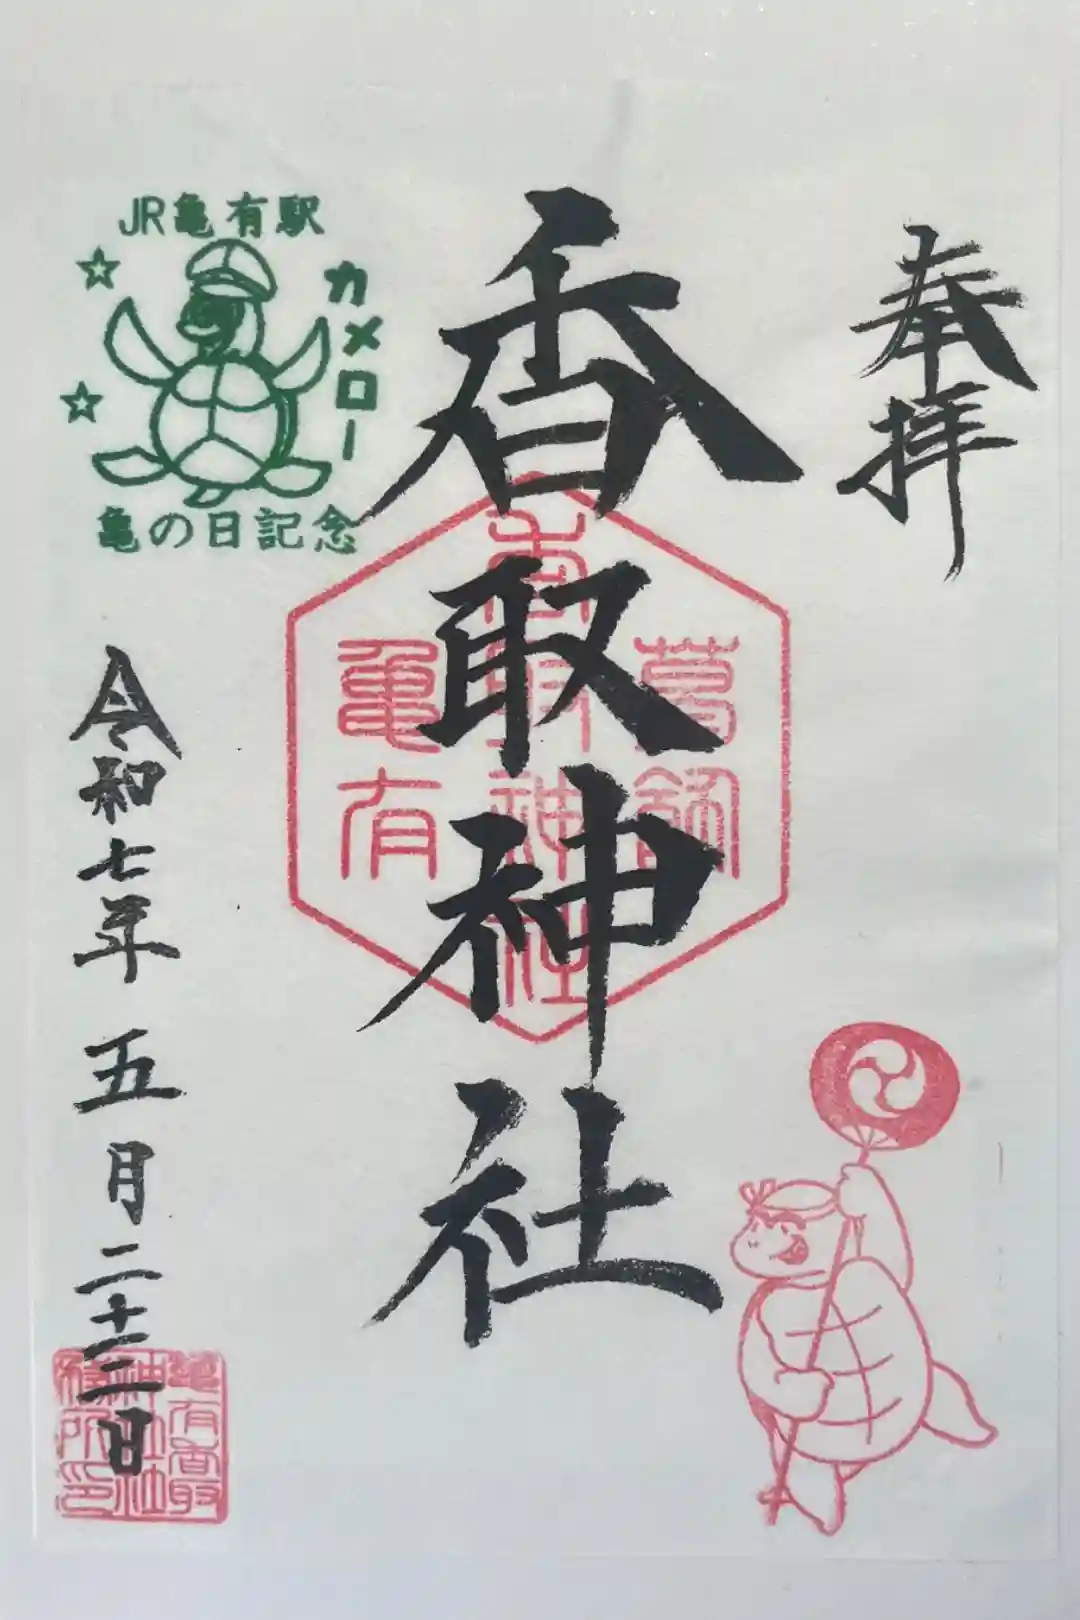 奉拝
香取神社
葛飾
香取神社
亀有
JR亀有駅
カメロー
亀の日記念
令和七年五月二十三日
亀有香取
神社社
務所印